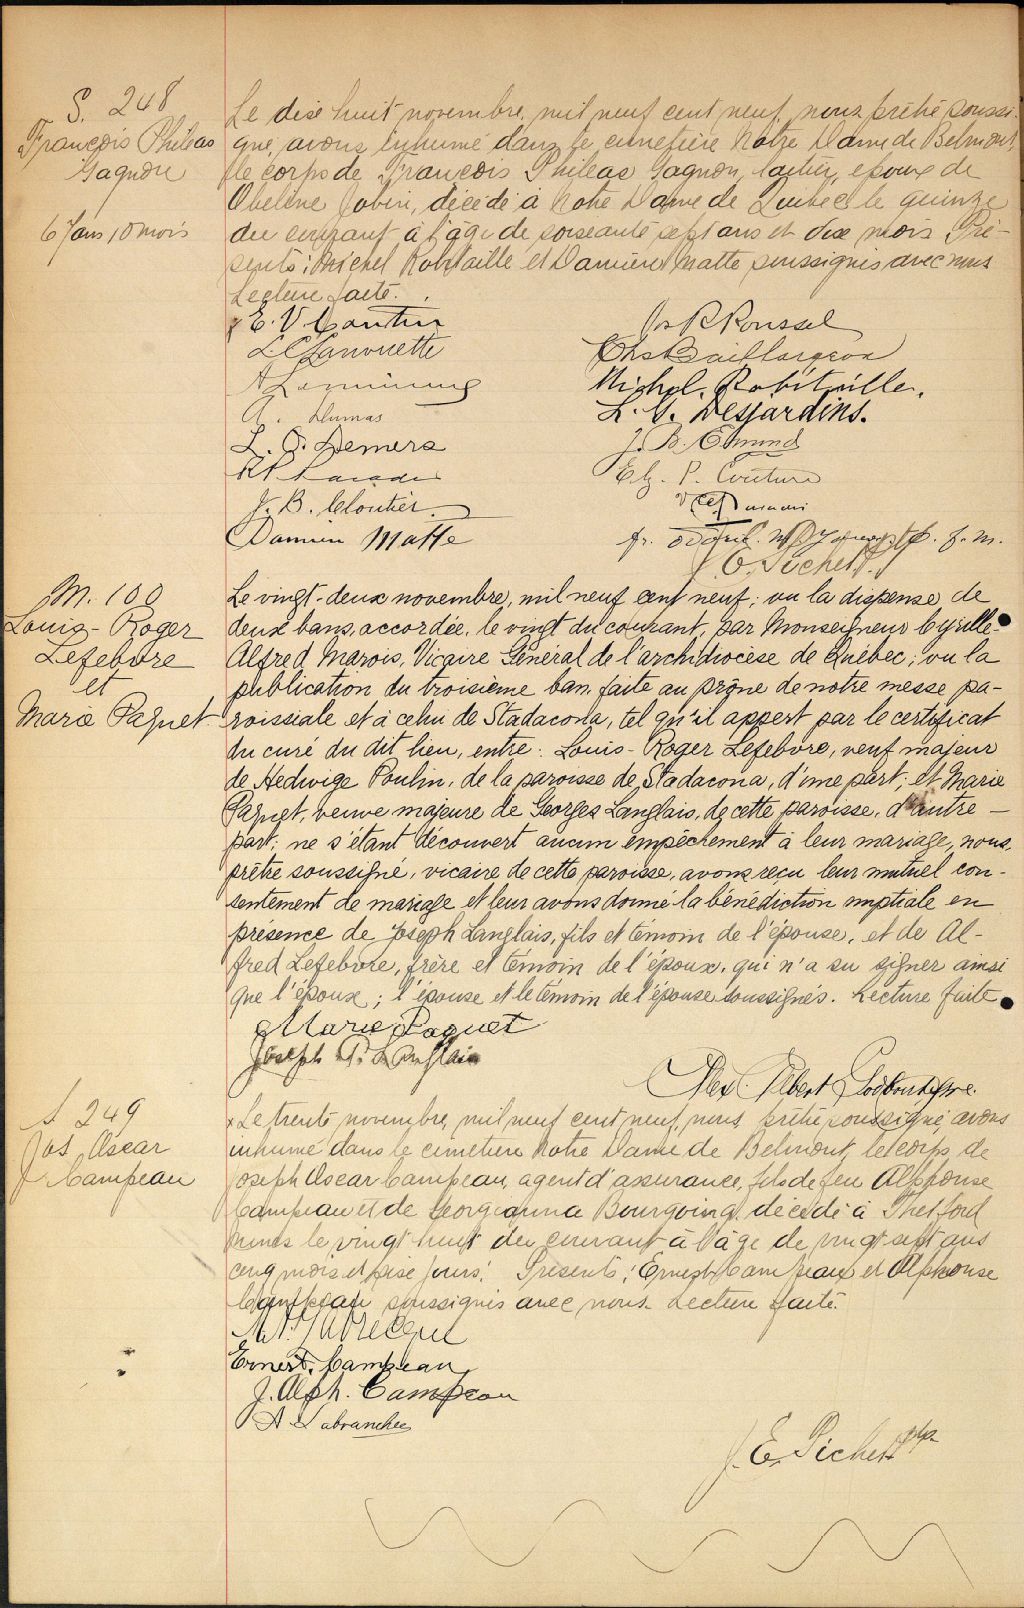 S. 248
François Philéas
Gagnon
67 ans 10 mois
Le dixe huit novembre, mil neuf cent neuf, nous prêtre soussi-
gné, avons inhumé dans le cimetière Notre Dame de Belmont,
le corps de François Phileas Gagnon, laitier, époux de
Obeline Jobin, décédé à Notre Dame de Québec le quinze
du courant à l'âge de soixante sept ans et dix mois. Pré-
sents: Michel Robitaille et Damien Matte soussignés avec nous
Lecture faite.
E. V. Cantin
Jos R Roussel
L C Lanouette
Chs Baillargeon
Michel. Robitaille.
A. Dumas
L. G. Desjardins.
L. O. Demers
J. B. Edmond
Elz. P. Couture
J. B. Cloutier
Damien Matte
fr. o.f.m.
J. E. Pichett
M. 100
Louis-Roger
Lefebvre
et
Marie Paquet
Le vingt-deux novembre, mil neuf cent neuf; vu la dispense de
deux bans, accordée, le vingt du courant, par Monseigneur Cyrille-
Alfred Marois, Vicaire Général de l'archidiocèse de Québec; vu la
publication du troisième ban, faite au prône de notre messe pa-
roissiale et à celui de Stadacona, tel qu'il appert par le certificat
du curé du dit lieu, entre: Louis-Roger Lefebvre, veuf majeur
de Hedwige Poulin, de la paroisse de Stadacona, d'une part; et Marie
Paquet, veuve majeure de Georges Langlais, de cette paroisse, d'autre-
part; ne s'étant découvert aucun empêchement à leur mariage, nous,
prêtre soussigné, vicaire de cette paroisse, avons reçu leur mutuel con-
sentement de mariage et leur avons donné la bénédiction nuptiale en
présence de Joseph Langlais, fils et témoin de l'épouse, et de Al-
fred Lefebvre, frère et témoin de l'époux, qui n'a su signer ainsi
que l'époux; l'épouse et le témoin de l'épouse soussignés. Lecture faite
Marie Paquet
Joseph Langlais
Alex. Albert Godbout
S 249
Jos Oscar
Campeau
x Le trente novembre, mil neuf cent neuf, nous, prêtre soussigné, avons
inhumé dans le cimetière Notre Dame de Belmont, le corps, de
Joseph Oscar Campeau, agent d'assurance, fils de feu Alphonse
Campeau et de Georgianna Bourgoing, décédé à Thetford
mines le vingt huit du courant à l'âge de vingt sept ans
cinq mois et seise jours. Présents; Ernest Campeau et Alphonse
Campeau soussignés avec nous. Lecture faite.
Labrecque
Ernest. Campeau
J. Alph. Campeau
A. Labranche
J. E. Pichett ptre